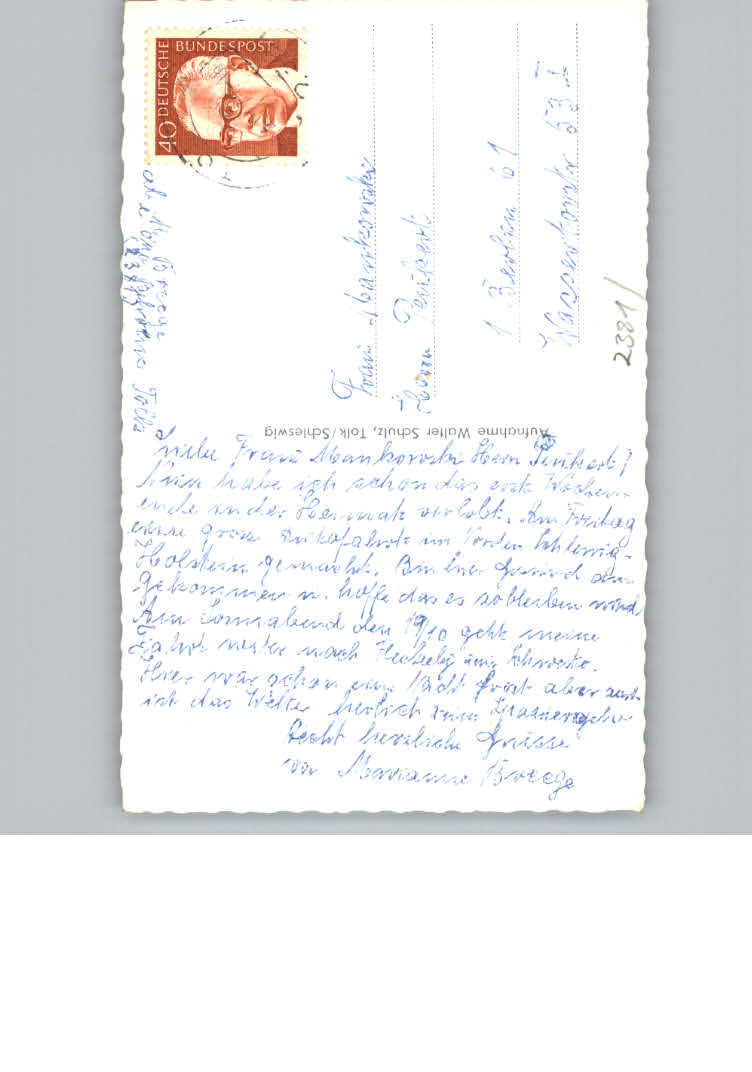 DEUTSCHE BUNDESPOST
40
Frau Mankowski
Herrn Peukert
1 Berlin 61
Wassertorstr 53 I
2381/
Aufnahme Walter Schulz, Tolk/Schleswig
Frau Mankowski Herrn Peukert!
Nun habe ich schon das erste Wochen-
ende in der Heimat verlebt. Am Freitag
eine grosse im Norden Schleswig-
Holstein gemacht. Bin hier gesund an-
gekommen u. hoffe das es so bleiben wird
Am Sonnabend den 19/10 geht meine
Fahrt weiter nach
Hier war schon eine Nacht Frost aber sonst
ist das Wetter herlich zum
Recht herzliche Grüsse
von Marianne Breege